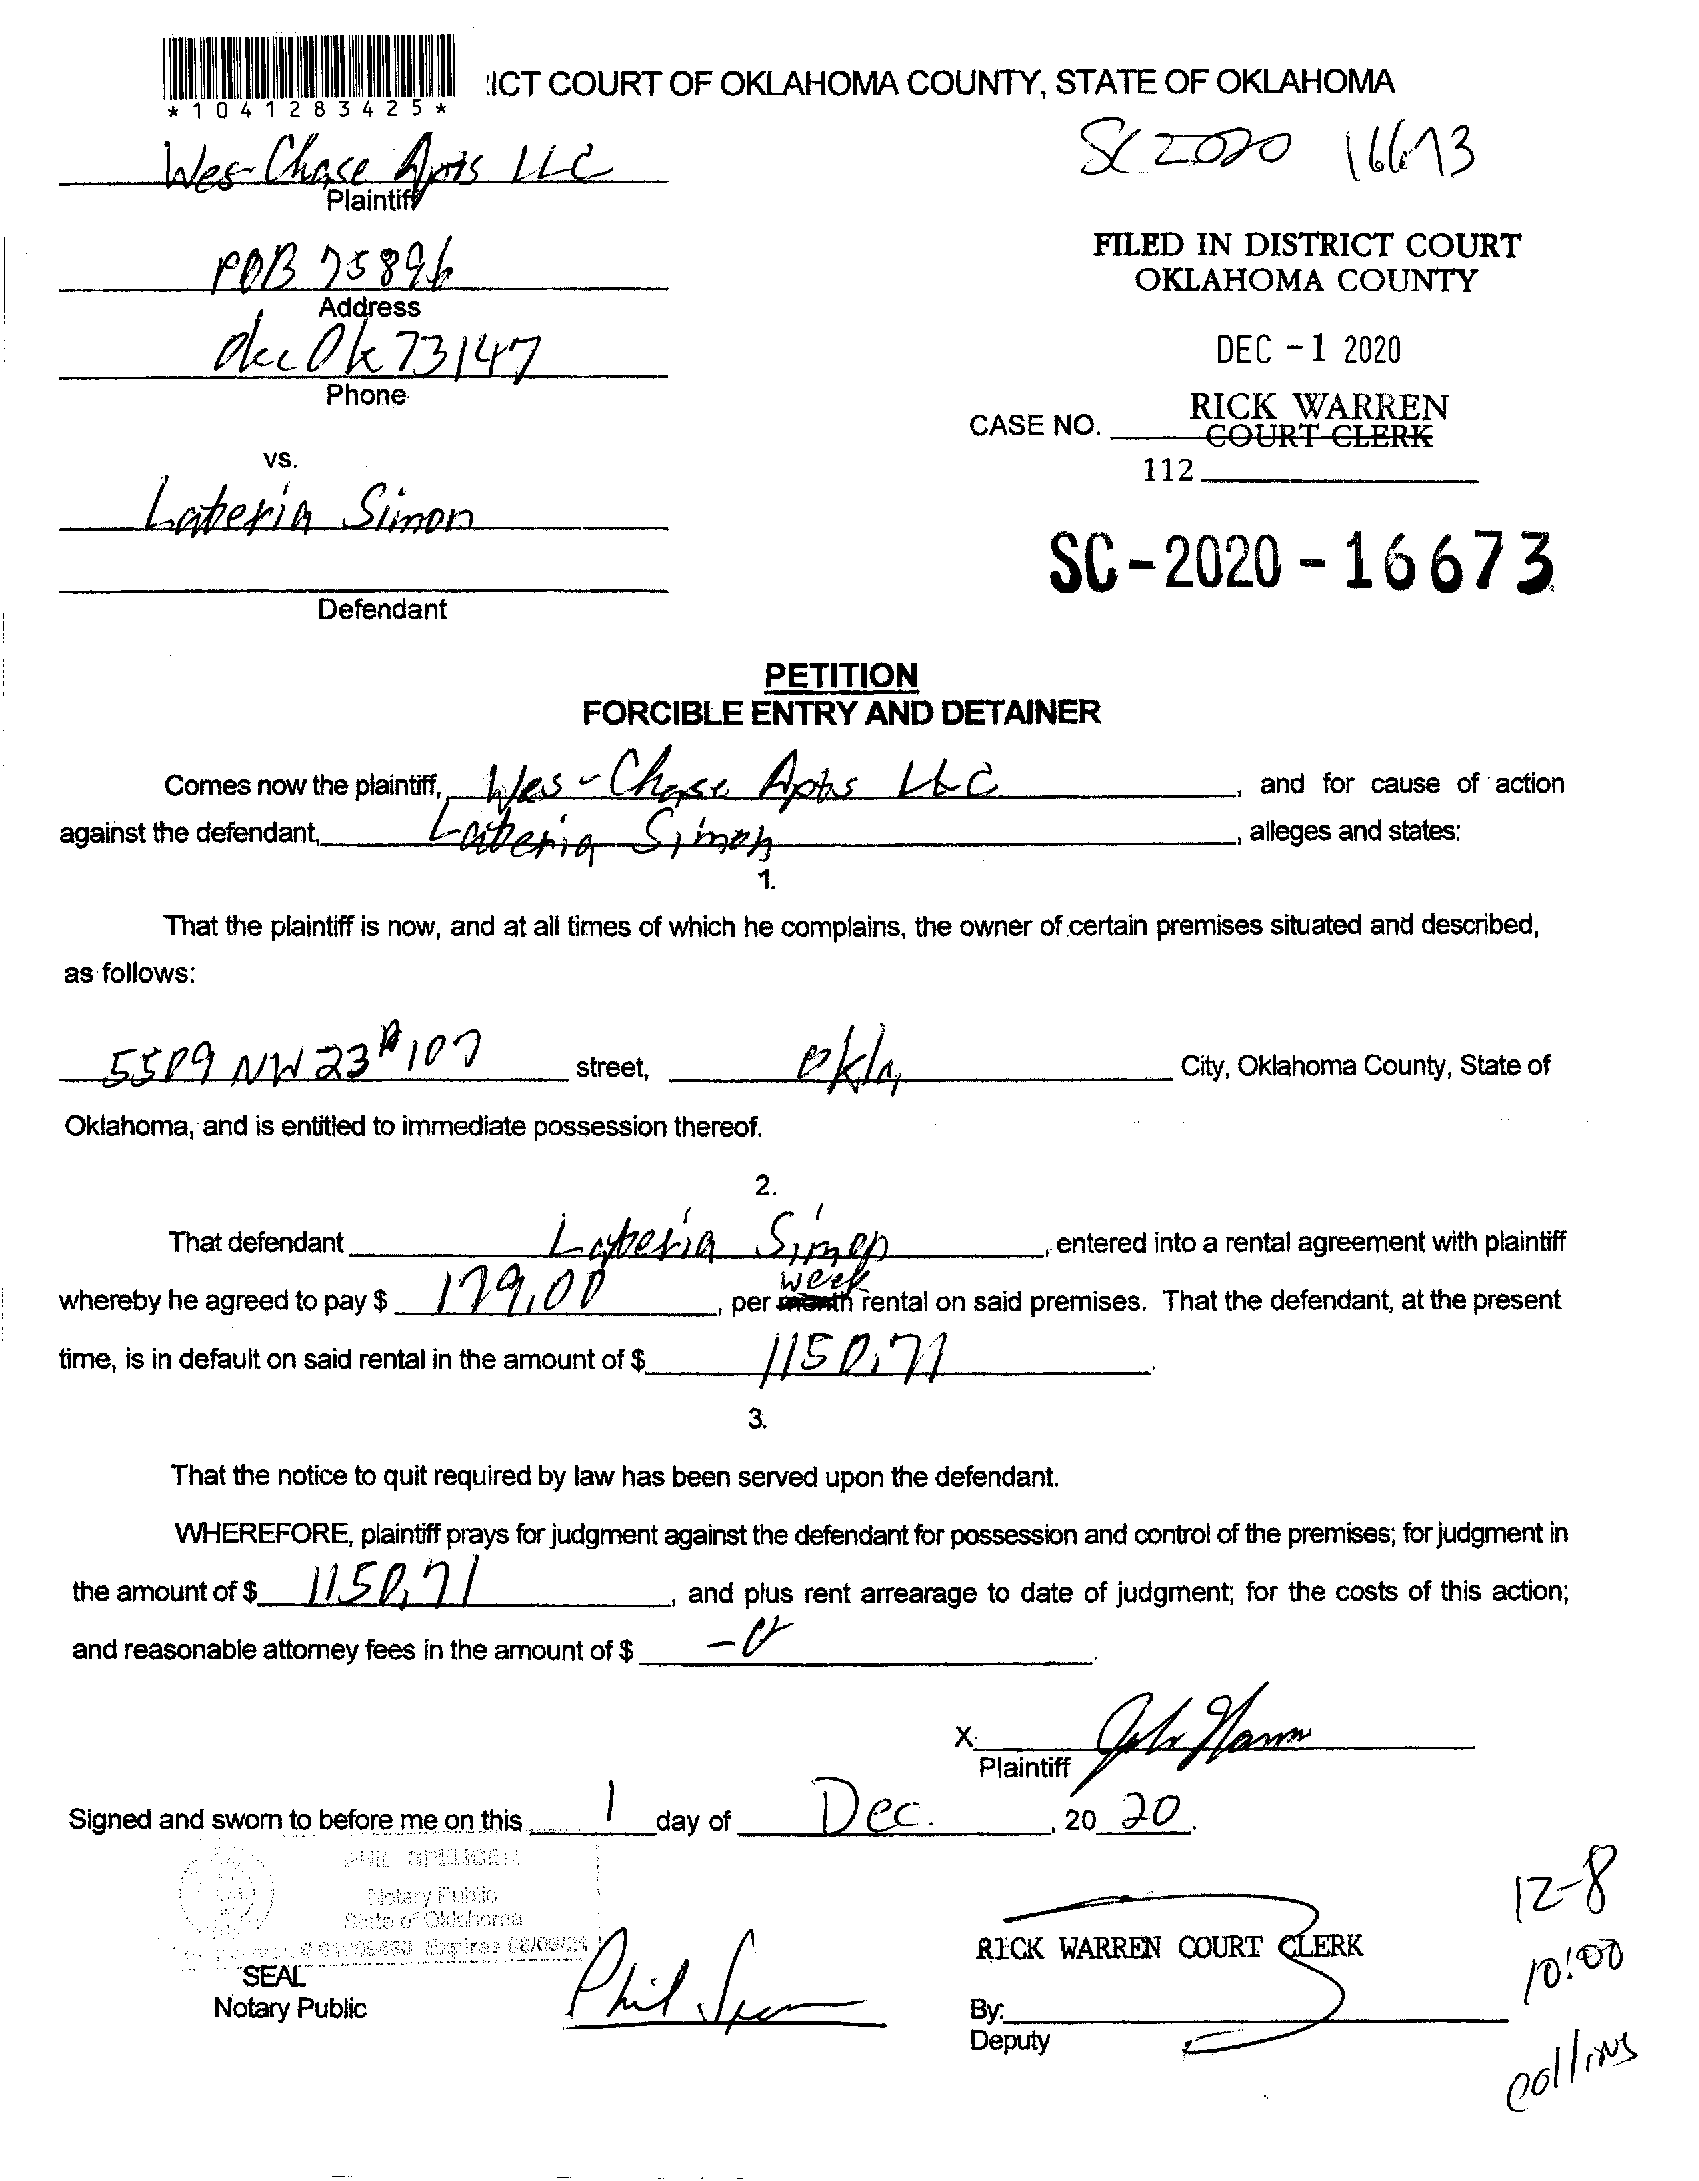 *1041283425*
ICT COURT OF OKLAHOMA COUNTY, STATE OF OKLAHOMA
Wes-Chase Apts LLC
Plaintiff
SC 2020 16673
POB 75896
Address
FILED IN DISTRICT COURT
OKLAHOMA COUNTY
okc Ok 73147
Phone
DEC -1 2020
RICK WARREN
COURT CLERK
CASE NO.
112
vs.
Laberia Simon
Defendant
SC-2020-16673
PETITION
FORCIBLE ENTRY AND DETAINER
Comes now the plaintiff, Wes-Chase Apts LLC, and for cause of action
against the defendant, Laberia Simon, alleges and states:
1.
That the plaintiff is now, and at all times of which he complains, the owner of certain premises situated and described,
as follows:
5509 NW 23 #107 street, Okla, City, Oklahoma County, State of
Oklahoma, and is entitled to immediate possession thereof.
2.
That defendant Laberia Simon, entered into a rental agreement with plaintiff
week
whereby he agreed to pay $ 179.00, per month rental on said premises. That the defendant, at the present
time, is in default on said rental in the amount of $ 1150.71.
3.
That the notice to quit required by law has been served upon the defendant.
WHEREFORE, plaintiff prays for judgment against the defendant for possession and control of the premises; for judgment in
the amount of $ 1150.71, and plus rent arrearage to date of judgment; for the costs of this action;
and reasonable attorney fees in the amount of $ -0.
X
Plaintiff
Signed and sworn to before me on this 1 day of Dec., 20 20.
Notary Public
State of Oklahoma
SEAL
Notary Public
Phil
RICK WARREN COURT CLERK
By:
Deputy
12-8
10:00
collins